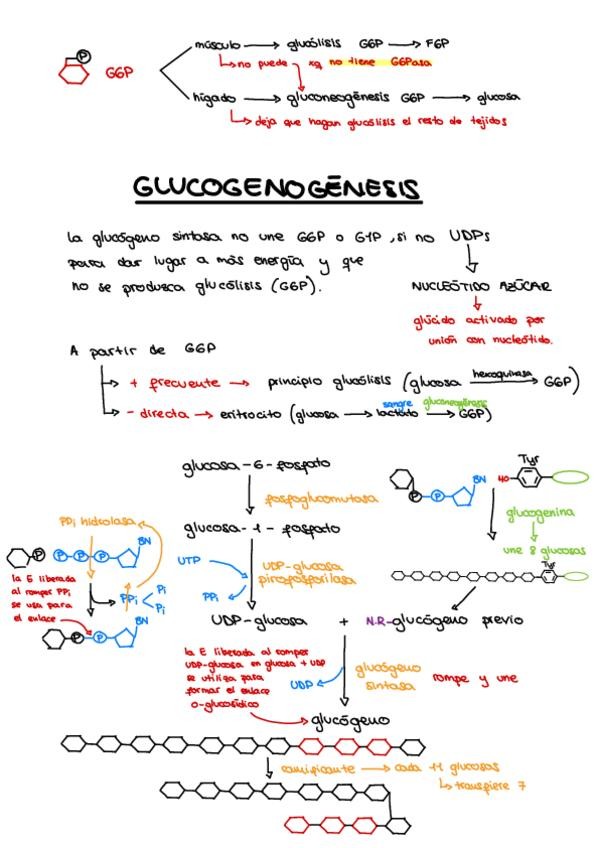 músculo → glucólisis G6P → F6P
no puede xq no tiene G6Pasa
P
G6P
hígado → gluconeogénesis G6P → glucosa
deja que hagan glucólisis el resto de tejidos
GLUCOGENOGÉNESIS
La glucógeno sintasa no une G6P o G1P, si no UDPs
para dar lugar a más energía y que
no se produzca glucólisis (G6P).
NUCLEÓTIDO AZÚCAR
glúcido activado por
unión con nucleótido.
A partir de G6P
+ frecuente → principio glucólisis (glucosa hexoquinasa → G6P)
- directa → eritrocito (glucosa → lactato → G6P)
sangre gluconeogénesis
glucosa-6-fosfato
fosfoglucomutasa
glucosa-1-fosfato
UTP
UDP-glucosa
pirofosforilasa
PPi
UDP-glucosa + N.R-glucógeno previo
PPi hidrolasa
BN
P P P P
la E liberada
al romper PPi
se usa para
el enlace
PPi Pi
Pi
BN
P P
Tyr
BN
HO
P P
glucogenina
une 8 glucosas
Tyr
la E liberada al romper
UDP-glucosa en glucosa + UDP
se utiliza para
formar el enlace
O-glucosídico
UDP
glucógeno
sintasa
rompe y une
glucógeno
ramificante → cada 11 glucosas
transfiere 7